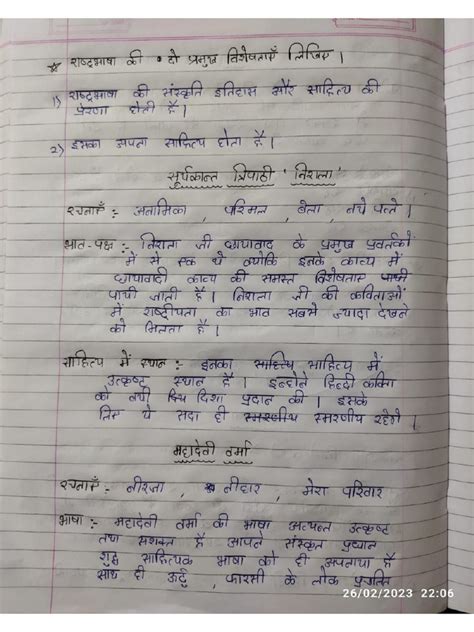 ★ राष्ट्रभाषा की दो प्रमुख विशेषताएँ लिखिए।
1) राष्ट्रभाषा की संस्कृति इतिहास और साहित्य की
प्रेरणा होती है।
2) इसका अपना साहित्य होता है।
सूर्यकान्त त्रिपाठी 'निराला'
रचनाएँ :- अनामिका, परिमल, बेला, नये पत्ते।
भाव-पक्ष :- निराला जी छायावाद के प्रमुख प्रवर्तकों
में से एक थे क्योकि इनके काव्य में
छायावादी काव्य की समस्त विशेषताए
पायी जाती है। निराला जी की कविताओं
में राष्ट्रीयता का भाव सबसे ज्यादा देखने
को मिलता है।
साहित्य में स्थान :- इनका साहित्य में
उत्कृष्ट स्थान है। इन्होने हिन्दी कविता
को नयी दिशा प्रदान की। इसके
लिए ये सदा ही स्मरणीय रहेगे।
महादेवी वर्मा
रचनाएँ :- नीरजा, नीहार, मेरा परिवार
भाषा :- महादेवी वर्मा की भाषा अत्यन्त उत्कृष्ट
तथा सशक्त है आपने संस्कृत प्रधान
शुद्ध साहित्यक भाषा को ही अपनाया है
साथ ही उर्दू, फारसी के लोक प्रचलित
26/02/2023 22:06